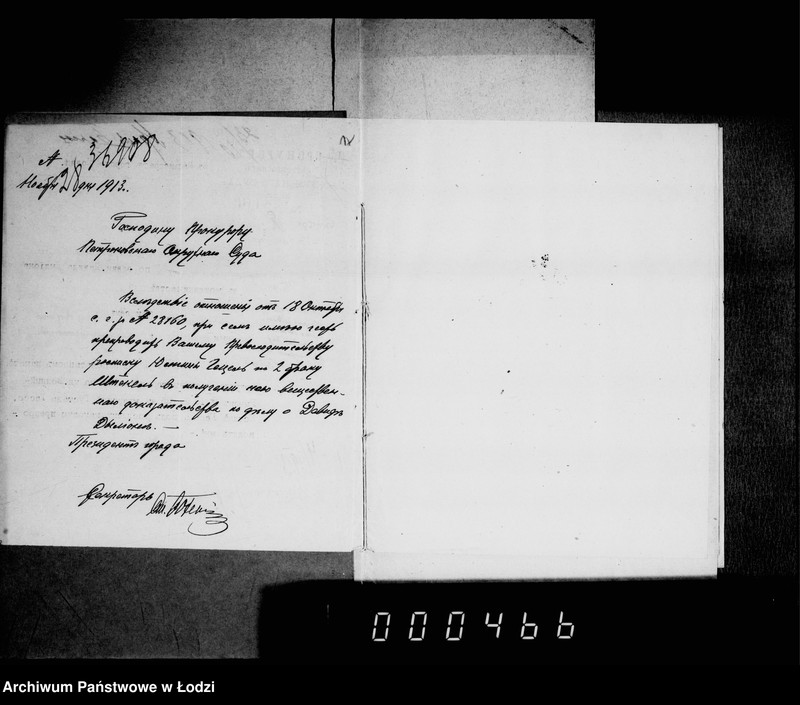 № 36908
Ноября 28 дня 1913.
Господину Прокурору
Петроковскаго Окружнаго Суда
Вследствіе отношенія отъ 18 Октября
с. г. за № 23160, при семъ имѣю честь
препроводить Вашему Превосходительству
росписку по 2 браку
въ полученіи ею веществен-
наго доказательства по дѣлу о Давидѣ
Президентъ города
Секретарь
000466
Archiwum Państwowe w Łodzi